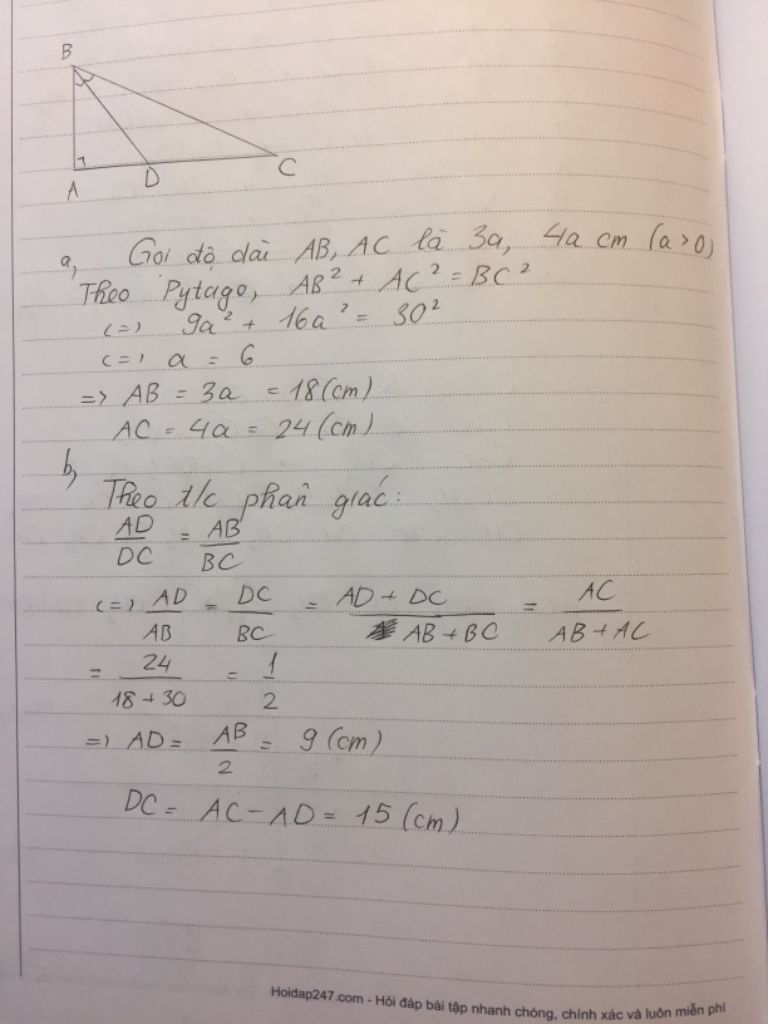 B
A D C
a, Gọi độ dài AB, AC là 3a, 4a cm (a>0)
Theo Pytago, AB² + AC² = BC²
(=) 9a² + 16a² = 30²
(=) a = 6
=> AB = 3a = 18 (cm)
AC = 4a = 24 (cm)
b,
Theo t/c phân giác:
AD/DC = AB/BC
(=) AD/AB = DC/BC = AD + DC/AB + BC = AC/AB + AC
= 24/18 + 30 = 1/2
=) AD = AB/2 = 9 (cm)
DC = AC - AD = 15 (cm)
Hoidap247.com - Hỏi đáp bài tập nhanh chóng, chính xác và luôn miễn phí